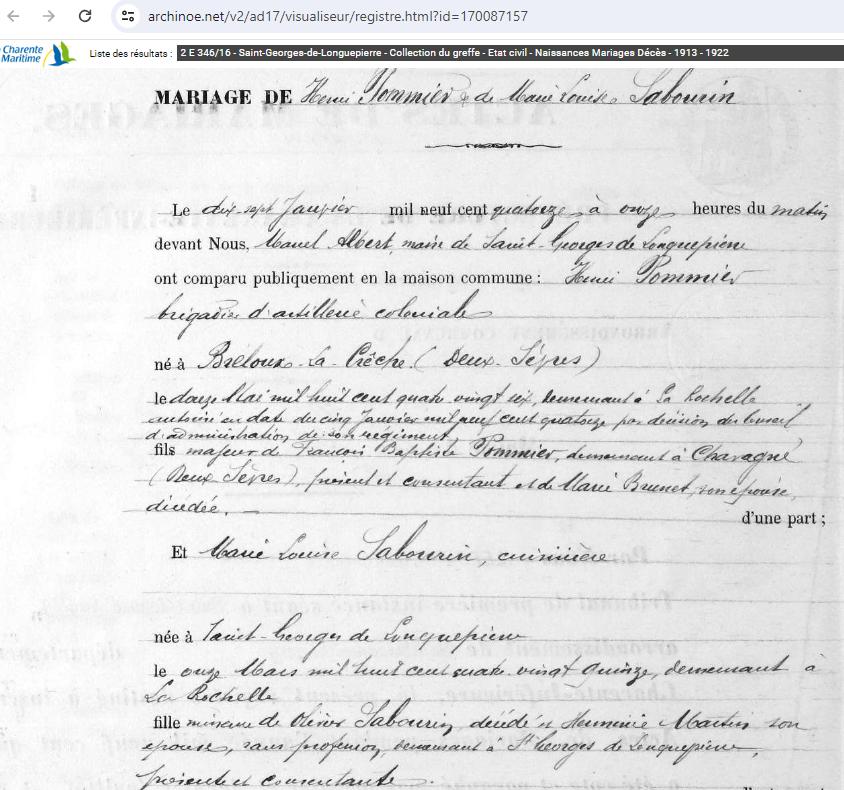 archinoe.net/v2/ad17/visualiseur/registre.html?id=170087157
Charente
Maritime
Liste des résultats : 2 E 346/16 - Saint-Georges-de-Longuepierre - Collection du greffe - Etat civil - Naissances Mariages Décès - 1913 - 1922
MARIAGE DE Henri Pommier & de Marie Louise Sabourin
Le dix-sept Janvier mil neuf cent quatorze, à onze heures du matin
devant Nous, Albert, maire de Saint-Georges de Longuepierre
ont comparu publiquement en la maison commune : Henri Pommier
brigadier d'artillerie coloniale
né à Breloux-La-Crèche (Deux-Sèvres)
le douze Mai mil huit cent quatre vingt six, demeurant à La Rochelle
autorisé en date du cinq Janvier mil neuf cent quatorze par décision du Conseil
d'administration de son régiment
fils majeur de François Baptiste Pommier, demeurant à Chavagné
(Deux Sèvres), présent et consentant et de Marie Brunet, son épouse,
décédée. d'une part ;
Et Marie Louise Sabourin, cuisinière
née à Saint-Georges de Longuepierre
le onze Mars mil huit cent quatre vingt quinze, demeurant à
La Rochelle
fille mineure de Sabourin, décédé et Herminie son
épouse, sans profession, demeurant à St Georges de Longuepierre,
présente et consentante.